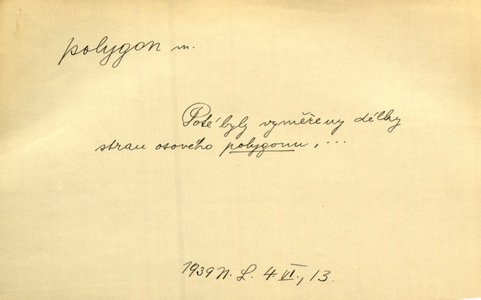 polygon m.
Poté byly vyměřeny délky
stran osového polygonu, ...
1939 N. L. 4. VI., 13.